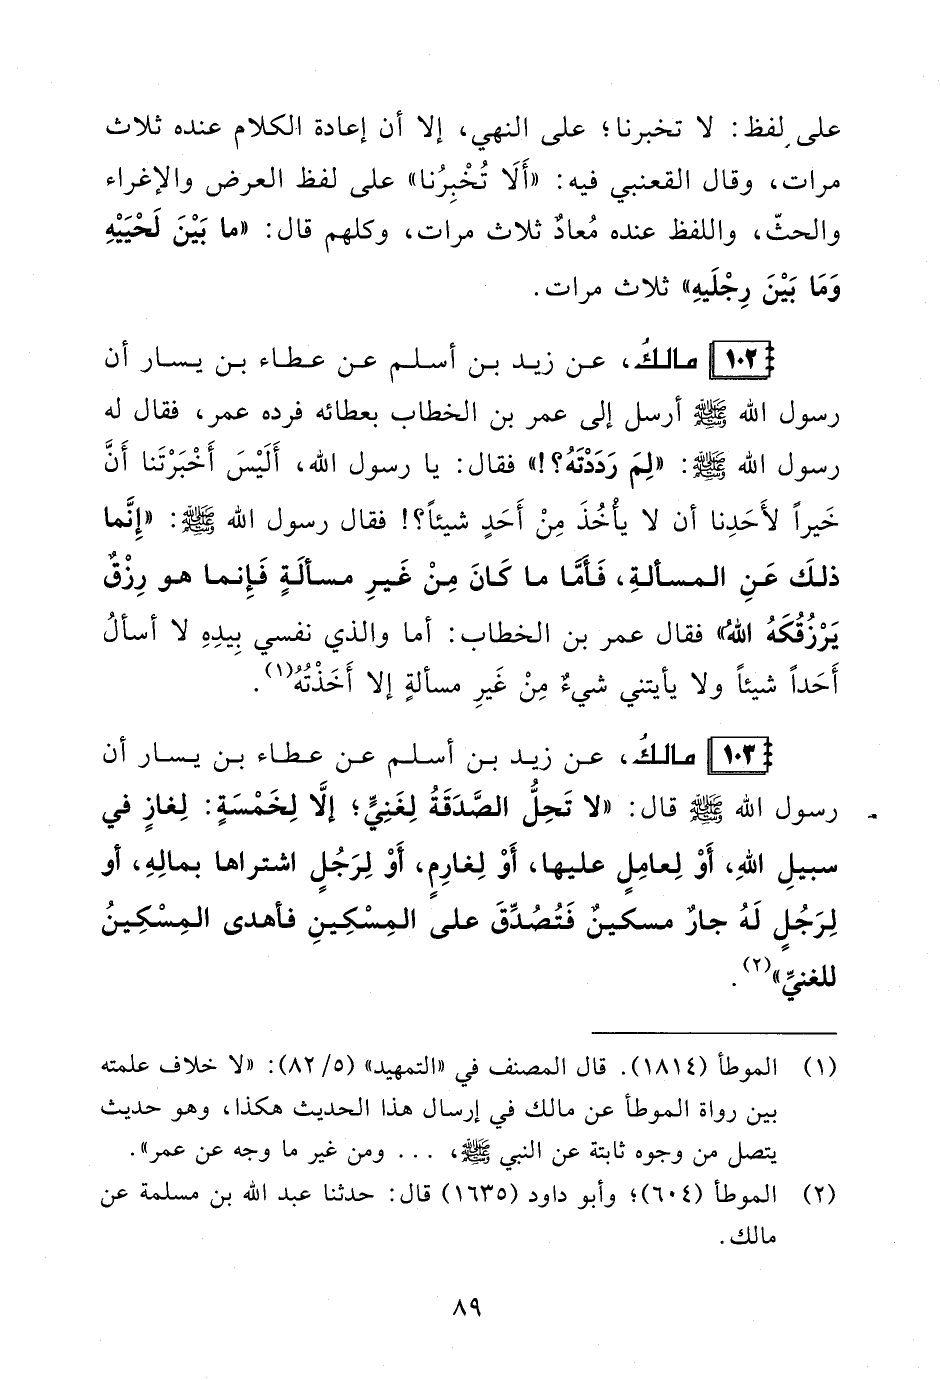 على لفظ: لا تخبرنا؛ على النهي، إلا أن إعادة الكلام عنده ثلاث
مرات، وقال القعنبي فيه: «أَلَا تُخْبِرُنا» على لفظ العرض والإغراء
والحثّ، واللفظ عنده مُعادٌ ثلاث مرات، وكلهم قال: «ما بَيْنَ لَحْيَيْهِ
وَمَا بَيْنَ رِجْلَيهِ» ثلاث مرات.
١٠٢ مالكُ، عن زيد بن أسلم عن عطاء بن يسار أن
رسول الله ﷺ أرسل إلى عمر بن الخطاب بعطائه فرده عمر، فقال له
رسول الله ﷺ: «لِمَ رَدَدْتَهُ؟!» فقال: يا رسول الله، أَلَيْسَ أَخْبَرْتَنا أَنَّ
خَيراً لأَحَدِنا أن لا يأْخُذَ مِنْ أَحَدٍ شيئاً؟! فقال رسول الله ﷺ: «إِنَّما
ذلكَ عَنِ المسألةِ، فَأَمَّا ما كَانَ مِنْ غَيرِ مسألَةٍ فَإِنما هو رِزْقٌ
يَرْزُقُكَهُ اللهُ» فقال عمر بن الخطاب: أما والذي نفسي بِيدِهِ لا أسألُ
أَحَداً شيئاً ولا يأيتني شيءٌ مِنْ غَيرِ مسألةٍ إلا أَخَذْتُهُ(١).
١٠٣ مالكُ، عن زيد بن أسلم عن عطاء بن يسار أن
رسول الله ﷺ قال: «لا تَحِلُّ الصَّدَقَةُ لِغَنِيٍّ؛ إلَّا لِخَمْسَةٍ: لِغازٍ في
سبيلِ اللهِ، أَوْ لِعاملٍ عليها، أَوْ لِغارِمٍ، أَوْ لِرَجُلٍ اشتراها بمالِهِ، أو
لِرَجُلٍ لَهُ جارٌ مسكينٌ فَتُصُدِّقَ على المِسْكِينِ فأهدى المِسْكِينُ
للغنيِّ»(٢).
(١) الموطأ (١٨١٤). قال المصنف في «التمهيد» (٥/ ٨٢): «لا خلاف علمته
بين رواة الموطأ عن مالك في إرسال هذا الحديث هكذا، وهو حديث
يتصل من وجوه ثابتة عن النبي ﷺ، ... ومن غير ما وجه عن عمر».
(٢) الموطأ (٦٠٤)؛ وأبو داود (١٦٣٥) قال: حدثنا عبد الله بن مسلمة عن
مالك.
٨٩